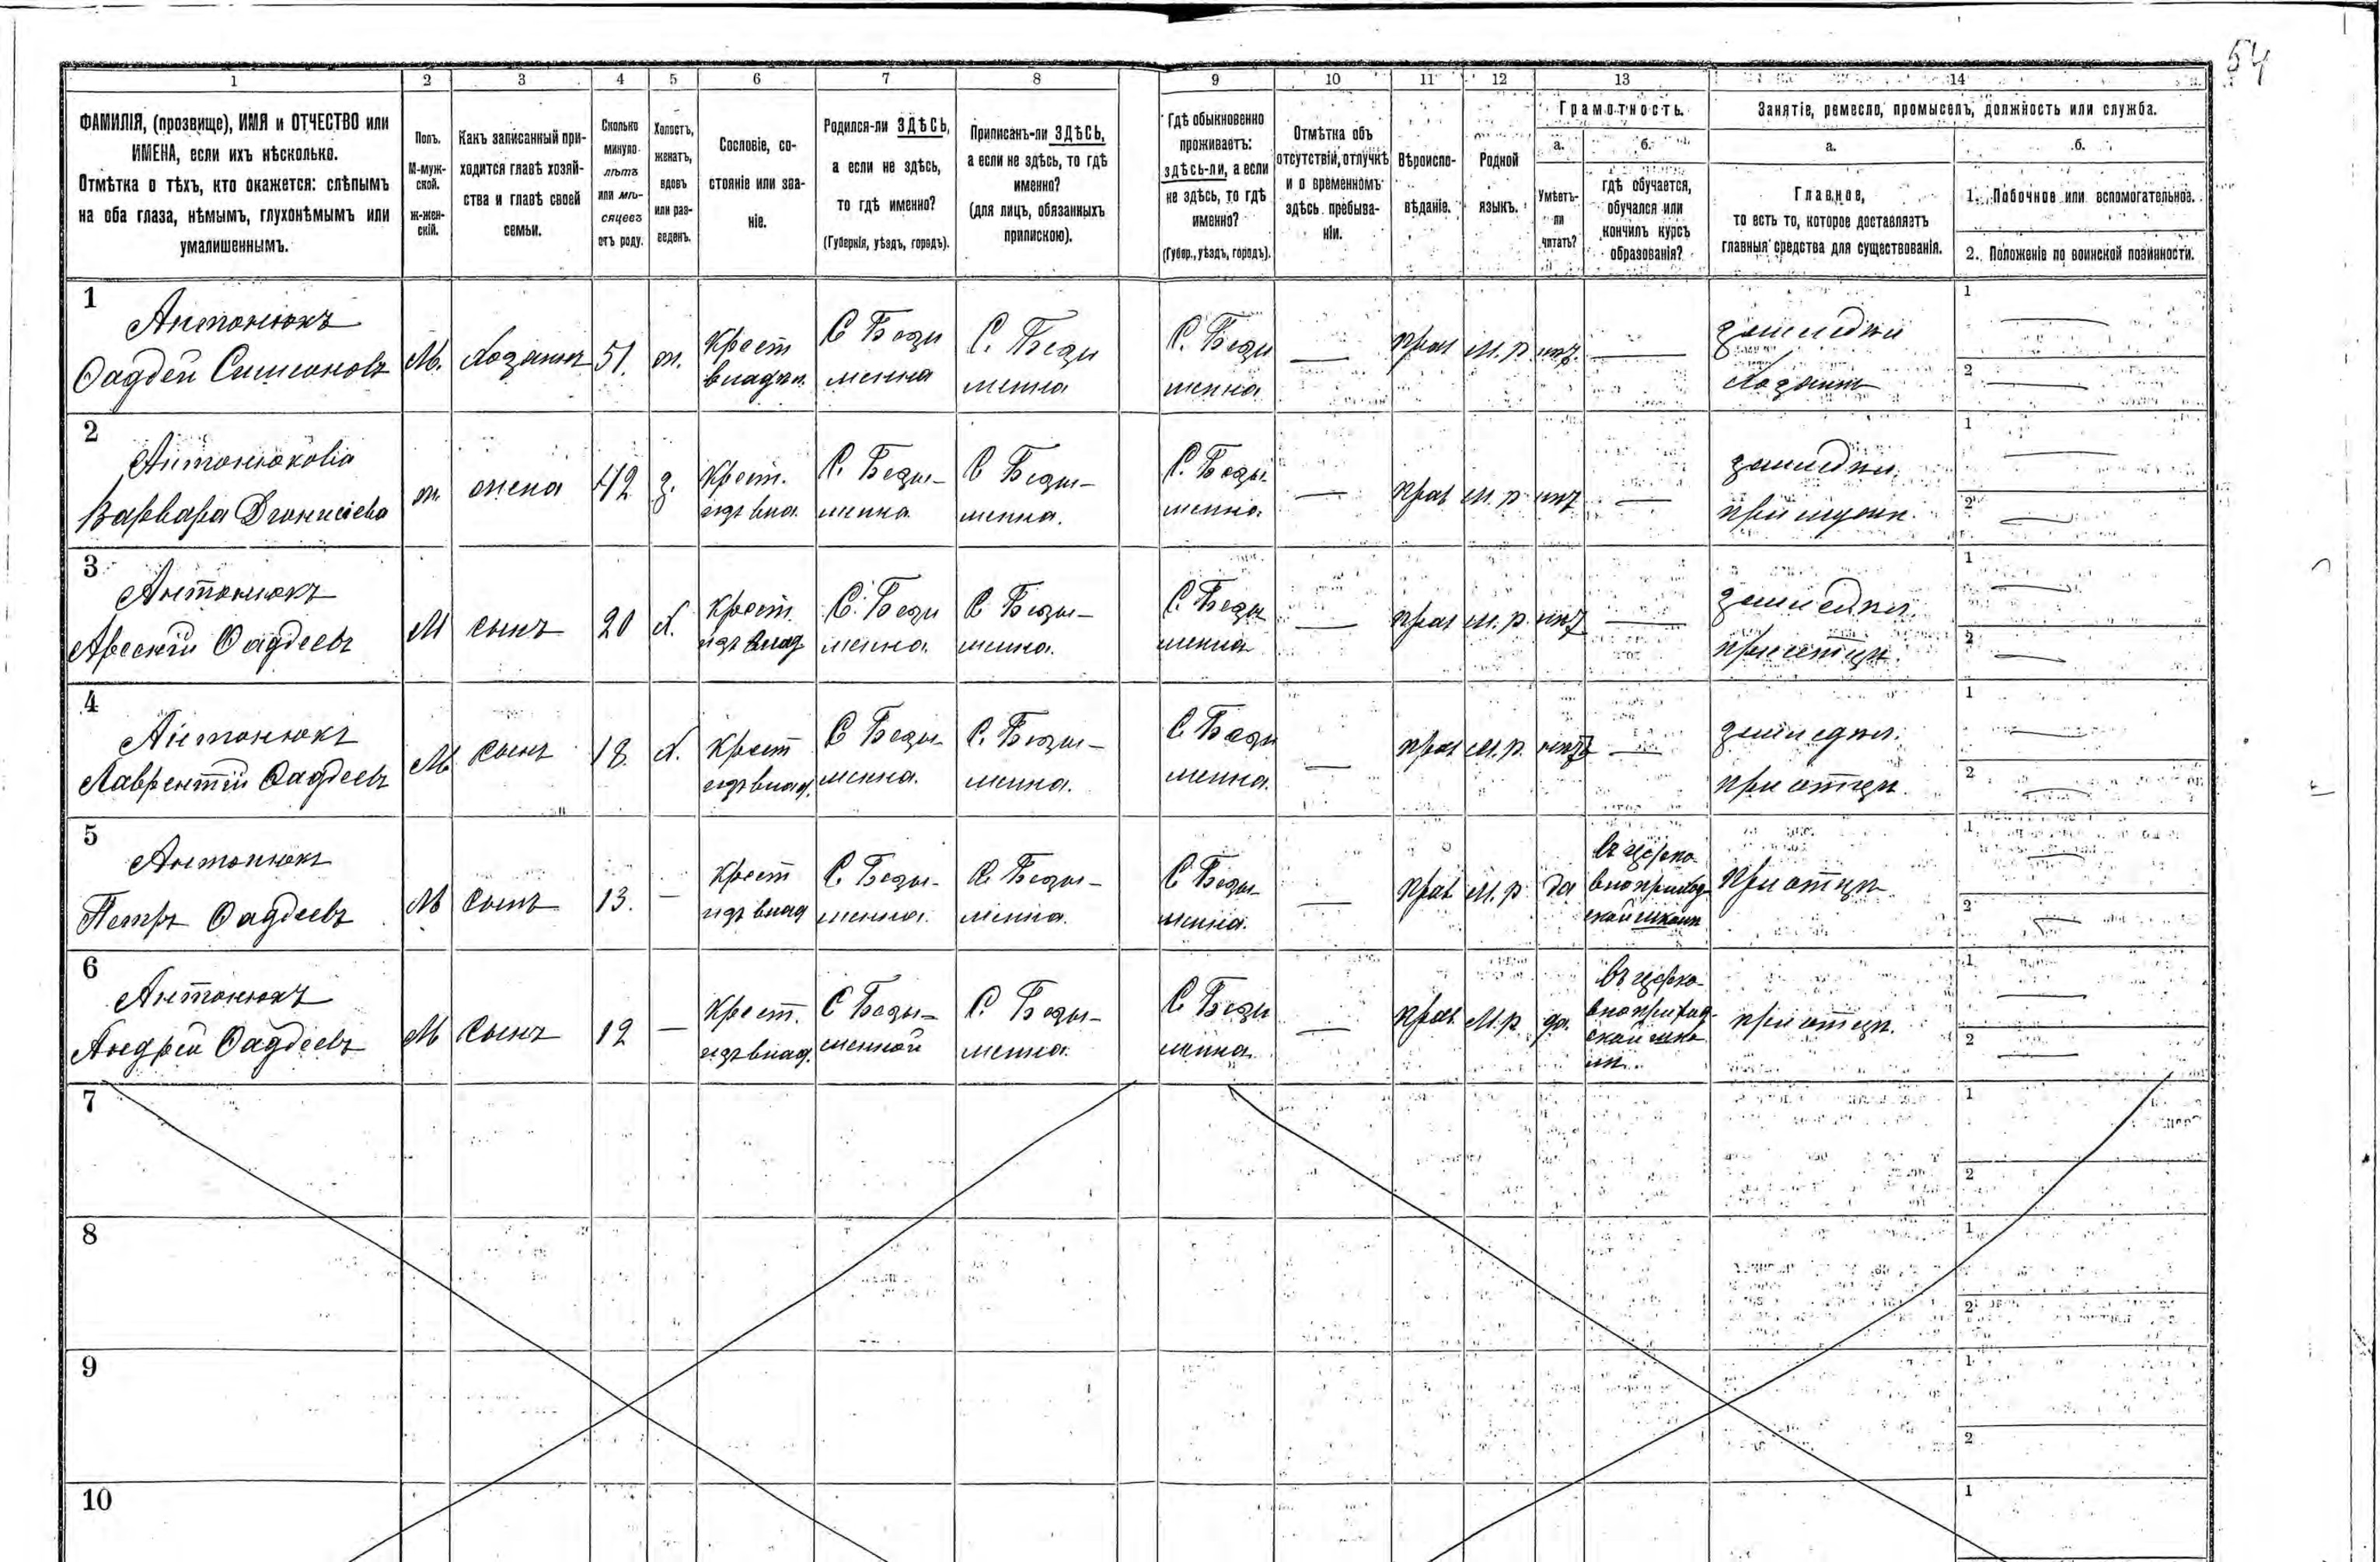 54
1 2 3 4 5 6 7 8 9 10 11 12 13 14
ФАМИЛІЯ, (прозвище), ИМЯ и ОТЧЕСТВО или
ИМЕНА, если ихъ нѣсколько.
Отмѣтка о тѣхъ, кто окажется: слѣпымъ
на оба глаза, нѣмымъ, глухонѣмымъ или
умалишеннымъ.
Полъ.
М-муж-
ской.
Ж-жен-
скій.
Какъ записанный при-
ходится главѣ хозяй-
ства и главѣ своей
семьи.
Сколько
минуло
лѣтъ
или мѣ-
сяцевъ
отъ роду.
Холостъ,
женатъ,
вдовъ
или раз-
веденъ.
Сословіе, со-
стояніе или зва-
ніе.
Родился-ли ЗДѢСЬ,
а если не здѣсь,
то гдѣ именно?
(Губернія, уѣздъ, городъ).
Приписанъ-ли ЗДѢСЬ,
а если не здѣсь, то гдѣ
именно?
(для лицъ, обязанныхъ
припискою).
Гдѣ обыкновенно
проживаетъ:
здѣсь-ли, а если
не здѣсь, то гдѣ
именно?
(Губер., уѣздъ, городъ).
Отмѣтка объ
отсутствіи, отлучкѣ
и о временномъ
здѣсь пребыва-
ніи.
Вѣроиспо-
вѣданіе.
Родной
языкъ.
Грамотность.
а.
Умѣетъ-
ли
читать?
б.
гдѣ обучается,
обучался или
кончилъ курсъ
образованія?
Занятіе, ремесло, промыселъ, должность или служба.
а.
Главное,
то есть то, которое доставляетъ
главныя средства для существованія.
б.
1. Побочное или вспомогательное.
2. Положеніе по воинской повинности.
1
Антонюкъ
Фадѣй Симоновъ
М.
Хозяинъ
51.
ж.
Крест
владѣл.
С Бези
менна
С. Бези
менна
С. Бези
менна
—
прав
м. р.
нѣт.
—
земледѣл
Хозяинъ
1 —
2 —
2
Антонюкова
Варвара Діонисіева
ж.
жена
42
з.
Крест.
изъ влад.
С. Безы-
менна
С Безы-
менна.
С. Безы-
менна
—
прав
м. р
нѣт
—
земледѣл.
при мужѣ.
1 —
2 —
3
Антонюкъ
Авксентій Фадѣевъ
М
сынъ
20
х.
Крест.
изъ влад
С. Бези
менна.
С Безы-
менна.
С. Безы
менна
—
прав
м. р.
нѣт
—
земледѣл.
при отцѣ.
1 —
2 —
4
Антонюкъ
Лаврентій Фадѣевъ
М
сынъ
18.
х.
Крест
изъ влад.
С Безы
менна.
С. Безы-
менна.
С Бези
менна.
—
прав
м. р.
нѣтъ
—
земледѣл.
при отцѣ.
1 —
2 —
5
Антонюкъ
Петръ Фадѣевъ
М
Сынъ
13.
—
Крест
изъ влад
С. Безы-
менна.
С. Безы-
менна.
С Безы
менна.
—
прав
м. р
да
въ церко-
вноприход
ской школѣ
при отцѣ
1 —
2 —
6
Антонюкъ
Андрей Фадѣевъ
М
Сынъ
12
—
Крест.
изъ влад.
С Безы-
менной
С. Безы-
менна.
С Бези
менна.
—
прав.
м. р
да.
въ церко-
вноприход-
ской шко
лѣ.
при отцѣ.
1 —
2 —
7
1
2
8
1
2
9
1
2
10
1